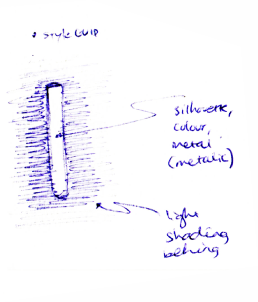 style GUID
silhouette,
colour,
metal
(metalic)
light
shading
behing